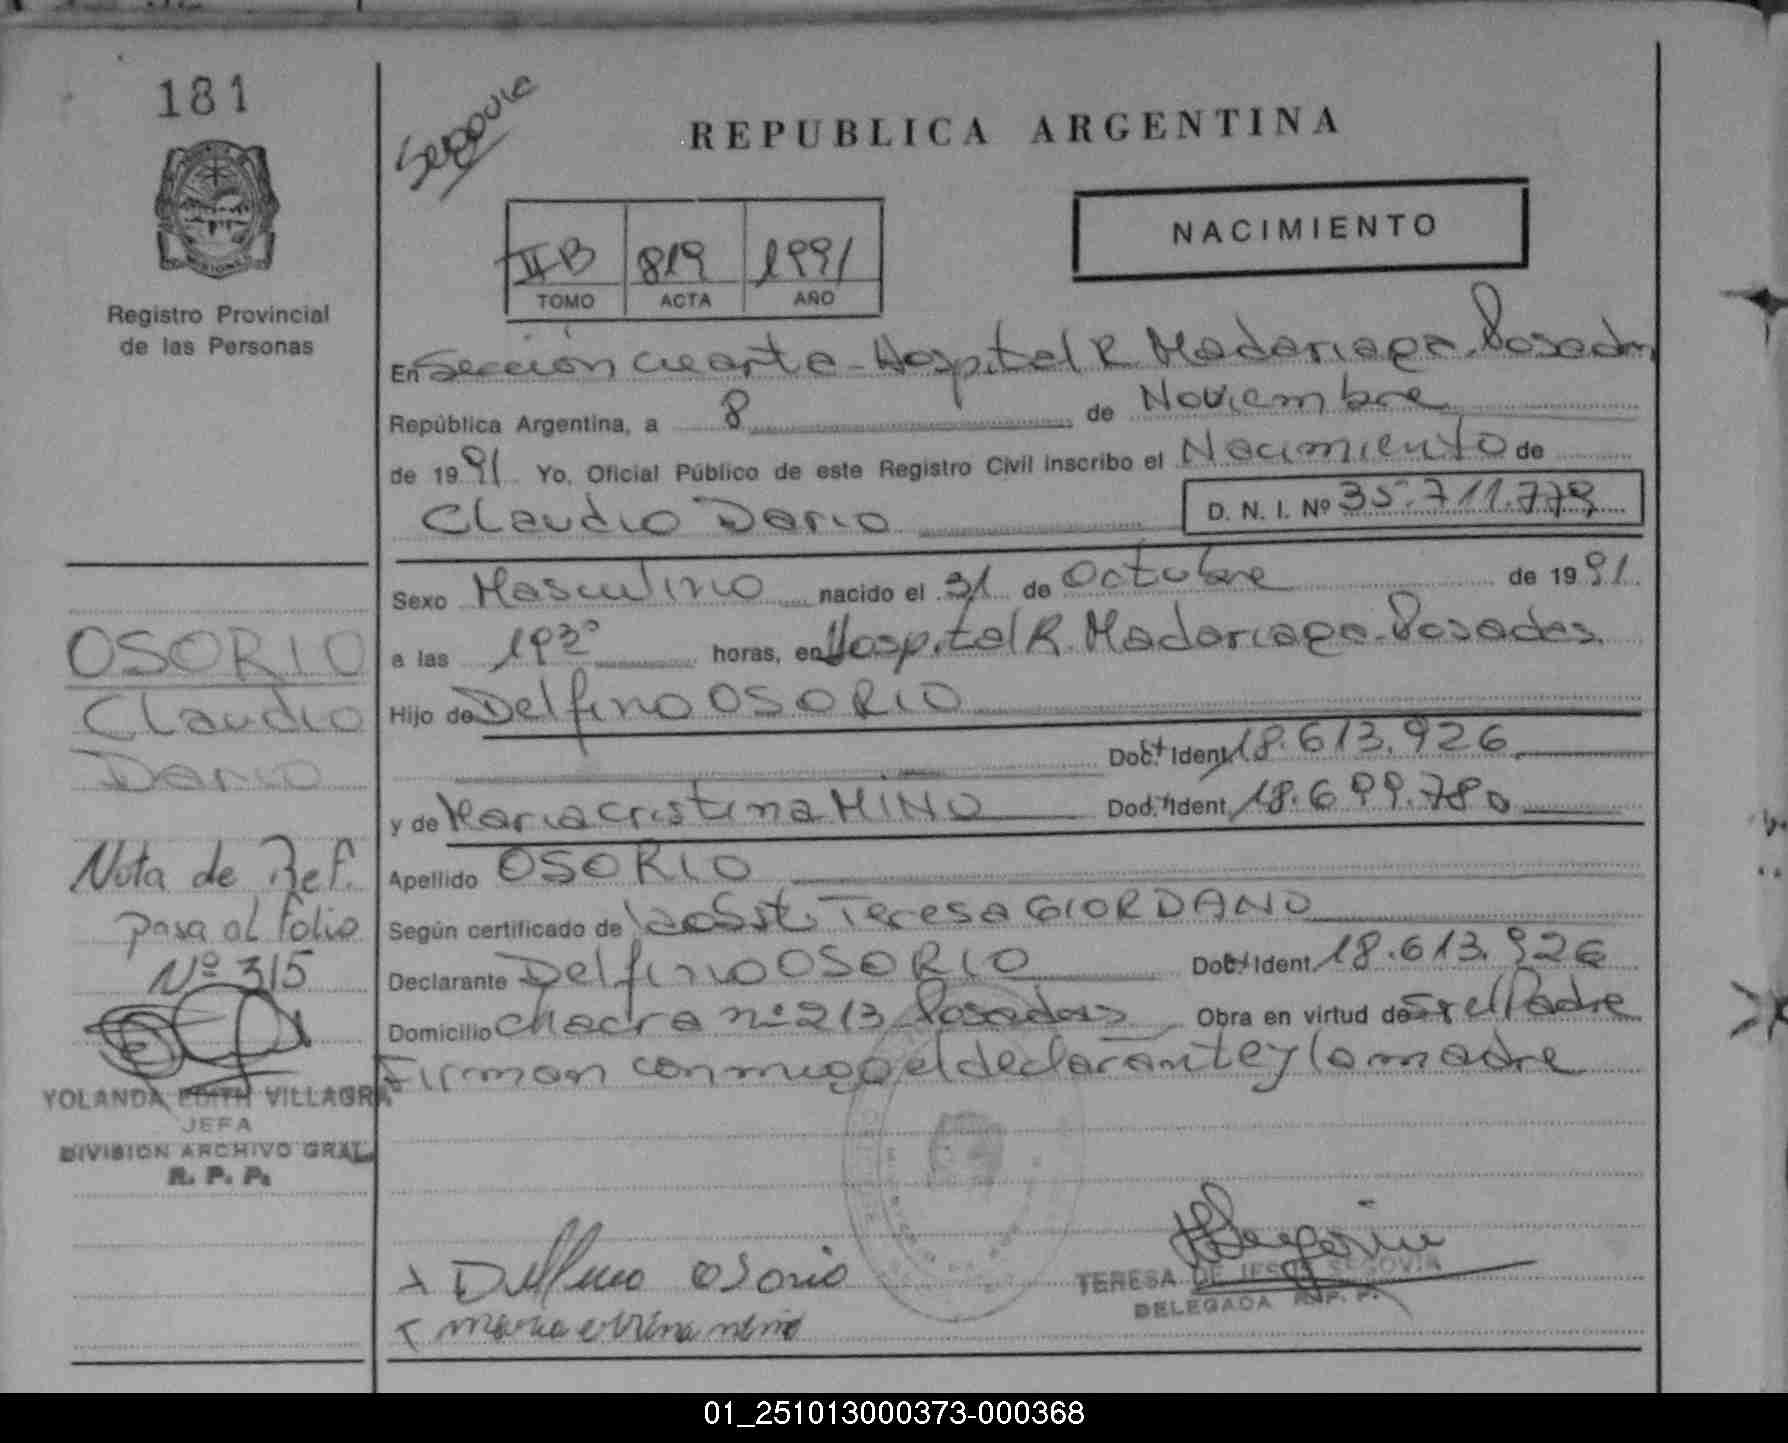 181
Registro Provincial
de las Personas
OSORIO
Claudio
Dario
Nota de Ref.
pasa al folio
Nº 315
YOLANDA EDITH VILLAGRA
JEFA
DIVISION ARCHIVO GRAL.
R. P. P.
REPUBLICA ARGENTINA
NACIMIENTO
II B 819 1991
TOMO ACTA AÑO
En Sección cuarta - Hospital R. Madariaga. Posadas
República Argentina, a 8 de Noviembre
de 1991 Yo, Oficial Público de este Registro Civil inscribo el Nacimiento de
Claudio Dario D. N. I. Nº 35.711.779
Sexo Masculino nacido el 31 de Octubre de 1991.
a las 19³⁰ horas, en Hospital R. Madariaga - Posadas.
Hijo de Delfino OSORIO
Doc. Ident. 18.613.926
y de Maria cristina MINO Doc. Ident. 18.699.780
Apellido OSORIO
Según certificado de Teresa GIORDANO
Declarante Delfino OSORIO Doc. Ident. 18.613.926
Domicilio chacra nº 213 Posadas Obra en virtud de ser el Padre
Firman conmigo el declarante y la madre
Delfino Osorio
TERESA DE JESUS SEGOVIA
DELEGADA R. P. P.
01_251013000373-000368